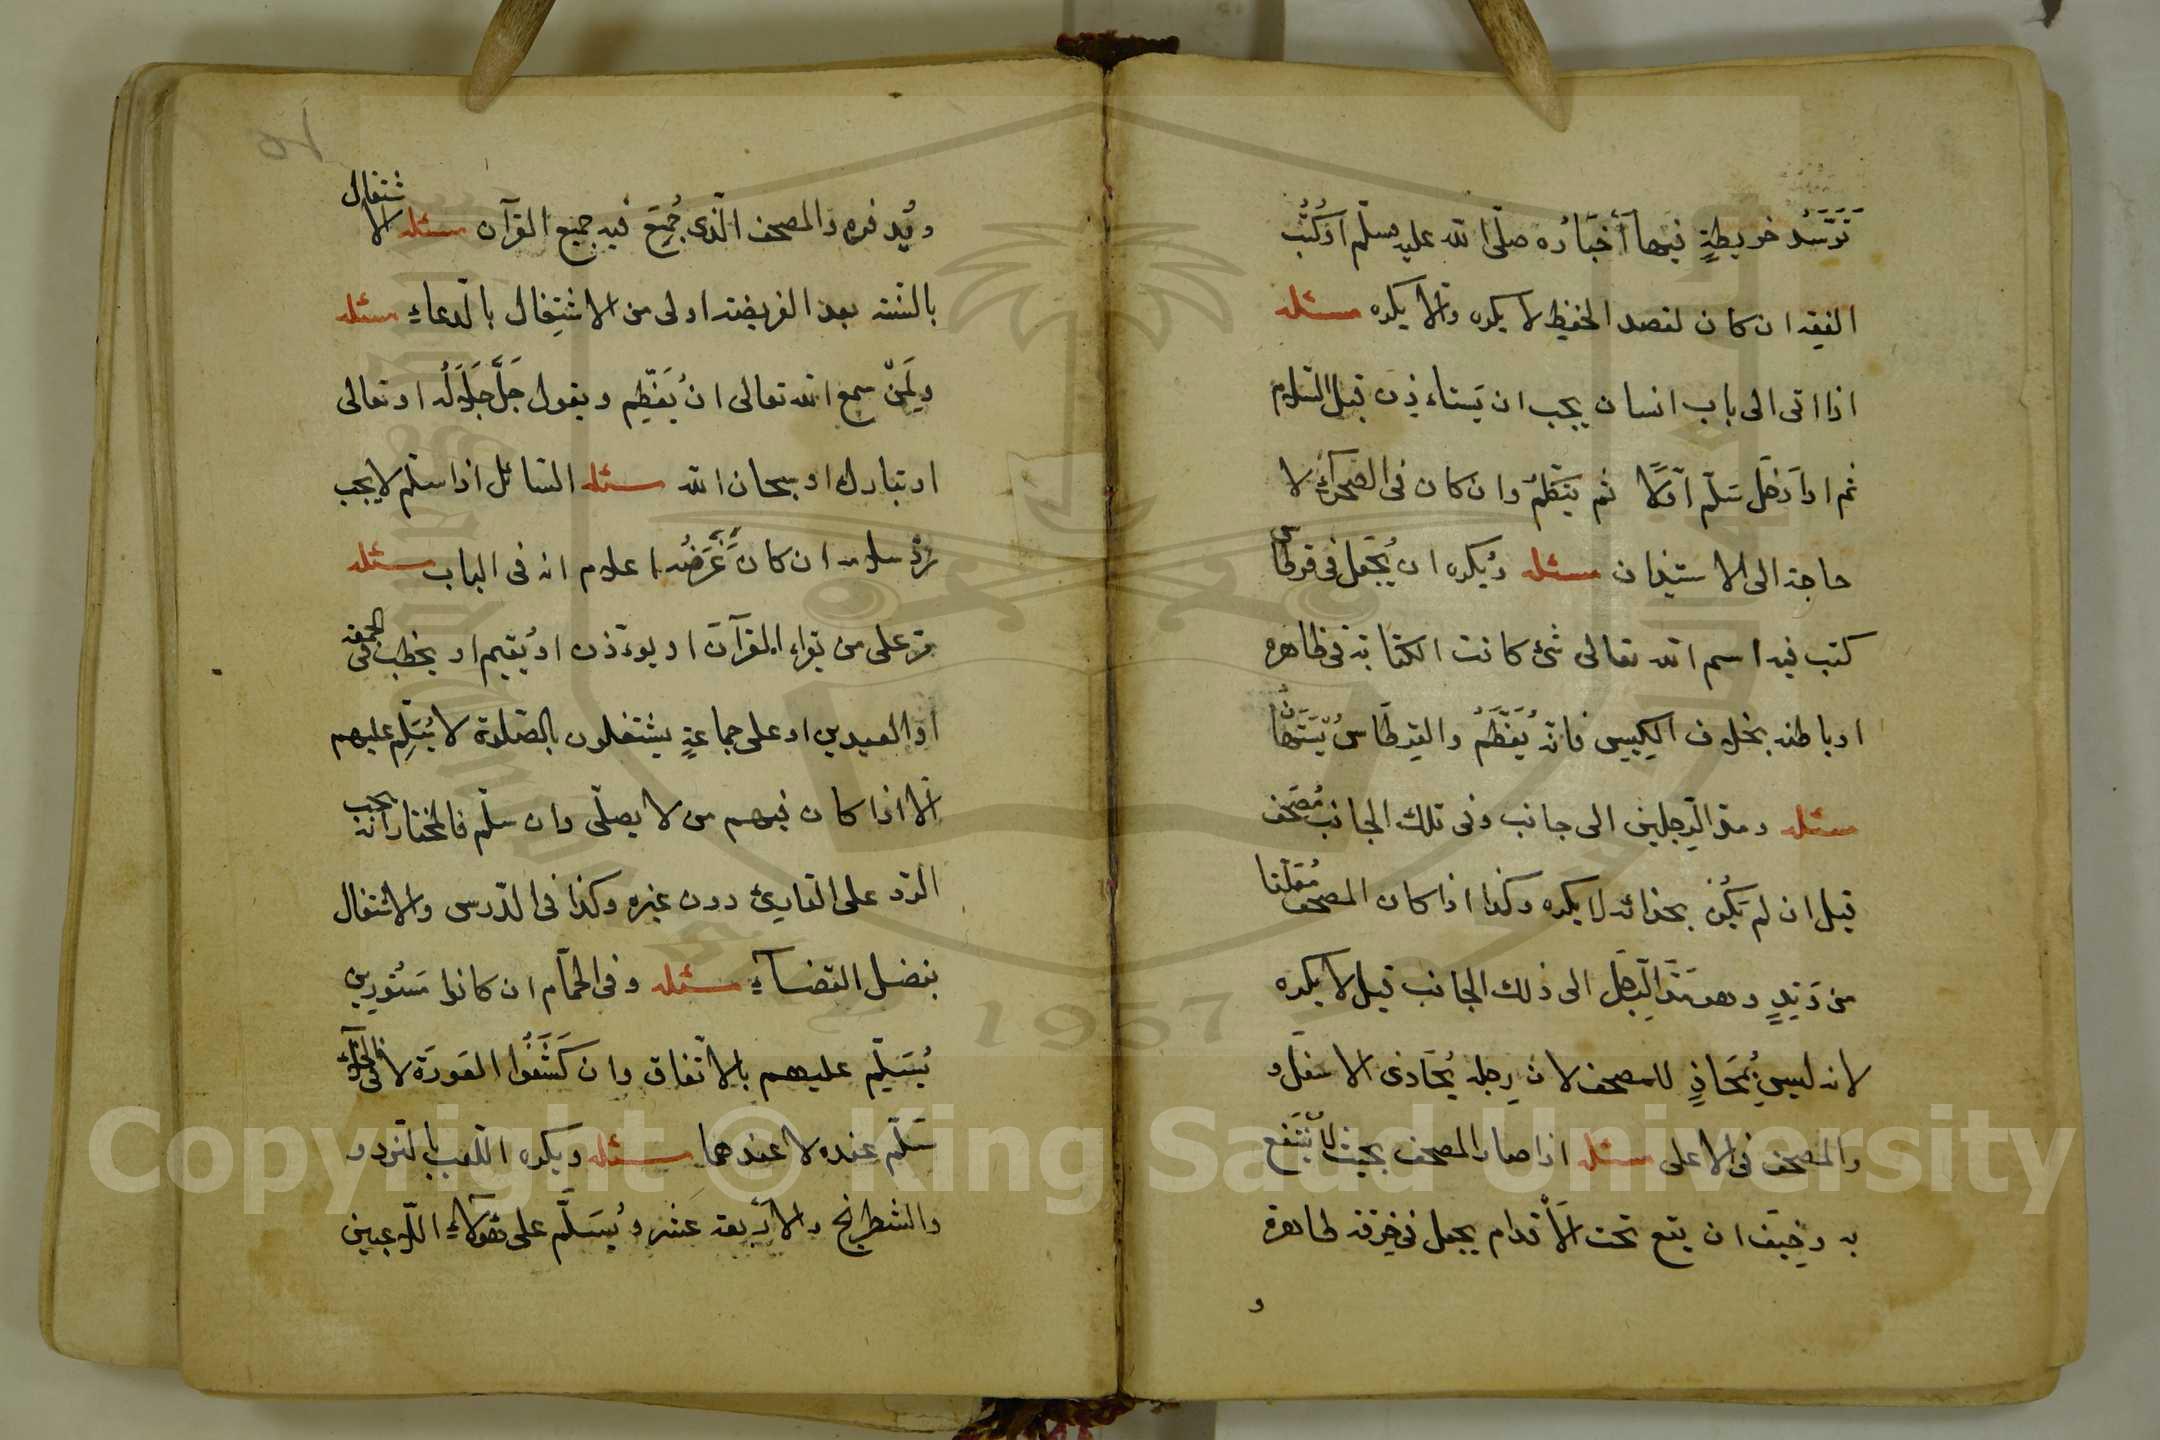 تَوَسَّدُ خريطةٍ فيها أَخبَارُه صلّى الله عليه وسلّم او كُتُب
الفقه ان كان لقصد الحفظ لا يكره والا يكره مسئله
اذا اتى الى باب انسان يجب ان يستاءذن قبل السّلام
ثم اذا دَخَل سَلّم اوّلًا ثم يتكلم وان كان فى الصحراء لا
حاجة الى الاستيذان مسئله ويُكره ان يُجعَل فى قرطاس
كتب فيه اسم الله تعالى شئ كانت الكتابة فى ظاهره
او باطنه بخلاف الكيس فانّه يُعَظَّمُ والقرطاس يُسْتَهَانُ
مسئله ومدّ الرّجلين الى جانب وفى تلك الجانب مُصحَف
قيل ان لم يَكُن بحذائه لا يكره وكذا اذا كان المصحف مُعَلّقا
من وَتِدٍ وهو مَدَّ الرِّجل الى ذلك الجانب قيل لا يكره
لانه ليس بُمحَاذٍ للمصحف لان رِجله يُحَاذى الاسفَل و
والمصحف فى الاعلى مسئله اذا صار المصحف بحيث لا يُنتَفع
به وخِيفَ ان يقع تحت الأقدام يجعل فى خِرقة طاهرة
و
ويُدفن والمصحف الّذى جُمِعَ فيه جميع القرآن مسئله الاشتغال
بالسّنة بعد الفريضة اولى من الاشتِغال بالدّعاءِ مسئله
ولِمَنْ سمع الله تعالى ان يُعَظِّم ويقول جَلَّ جَلَالُه او تعالى
او تبارك او سبحان الله مسئله السّائل اذا سلّم لا يجب
ردّ سلامه ان كان غَرَضُه اعلام انه فى الباب مسئله
مرّ على من يقراء القرآن او يوءذن او يُقيم او يخطب فى الجمعة
او العيدين او على جماعةٍ يشتغلون بالصّلوة لا يُسَلِّم عليهم
الا اذا كان فيهم من لا يصلّى وان سلّم فالمختار انه يجب
الرّد على القارئ دون غيره وكذا فى الدّرس والاشتغال
بفصل القضآءِ مسئله وفى الحمّام ان كانوا مَستُورين
يُسَلِّم عليهم بالاتّفاق وان كَشَفُوا العَورَة لا
سَلّم عنده لا عندهما مسئله ويكره اللّعب بالنّرد و
والشطرنج والأربعة عَشر ويُسَلَّم على هؤلاءِ اللّاعبين